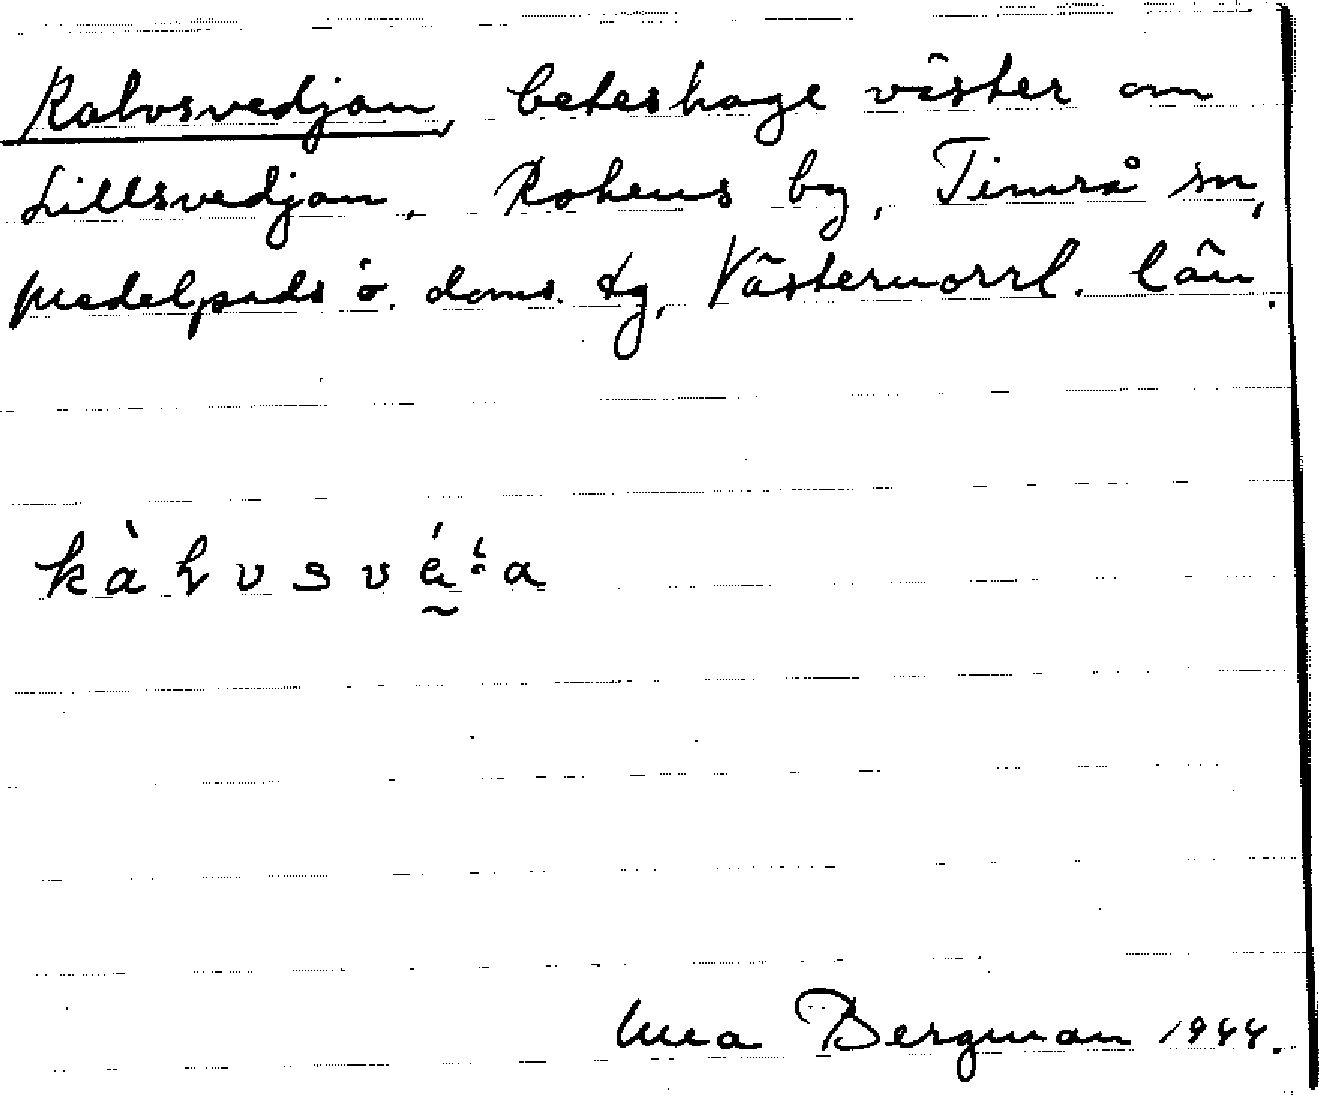 Kalvsvedjan, beteshage väster om
Lillsvedjan, by, Timrå sn,
Medelpads ö. doms. tg, Västernorrl. län.
Bergman 1944.